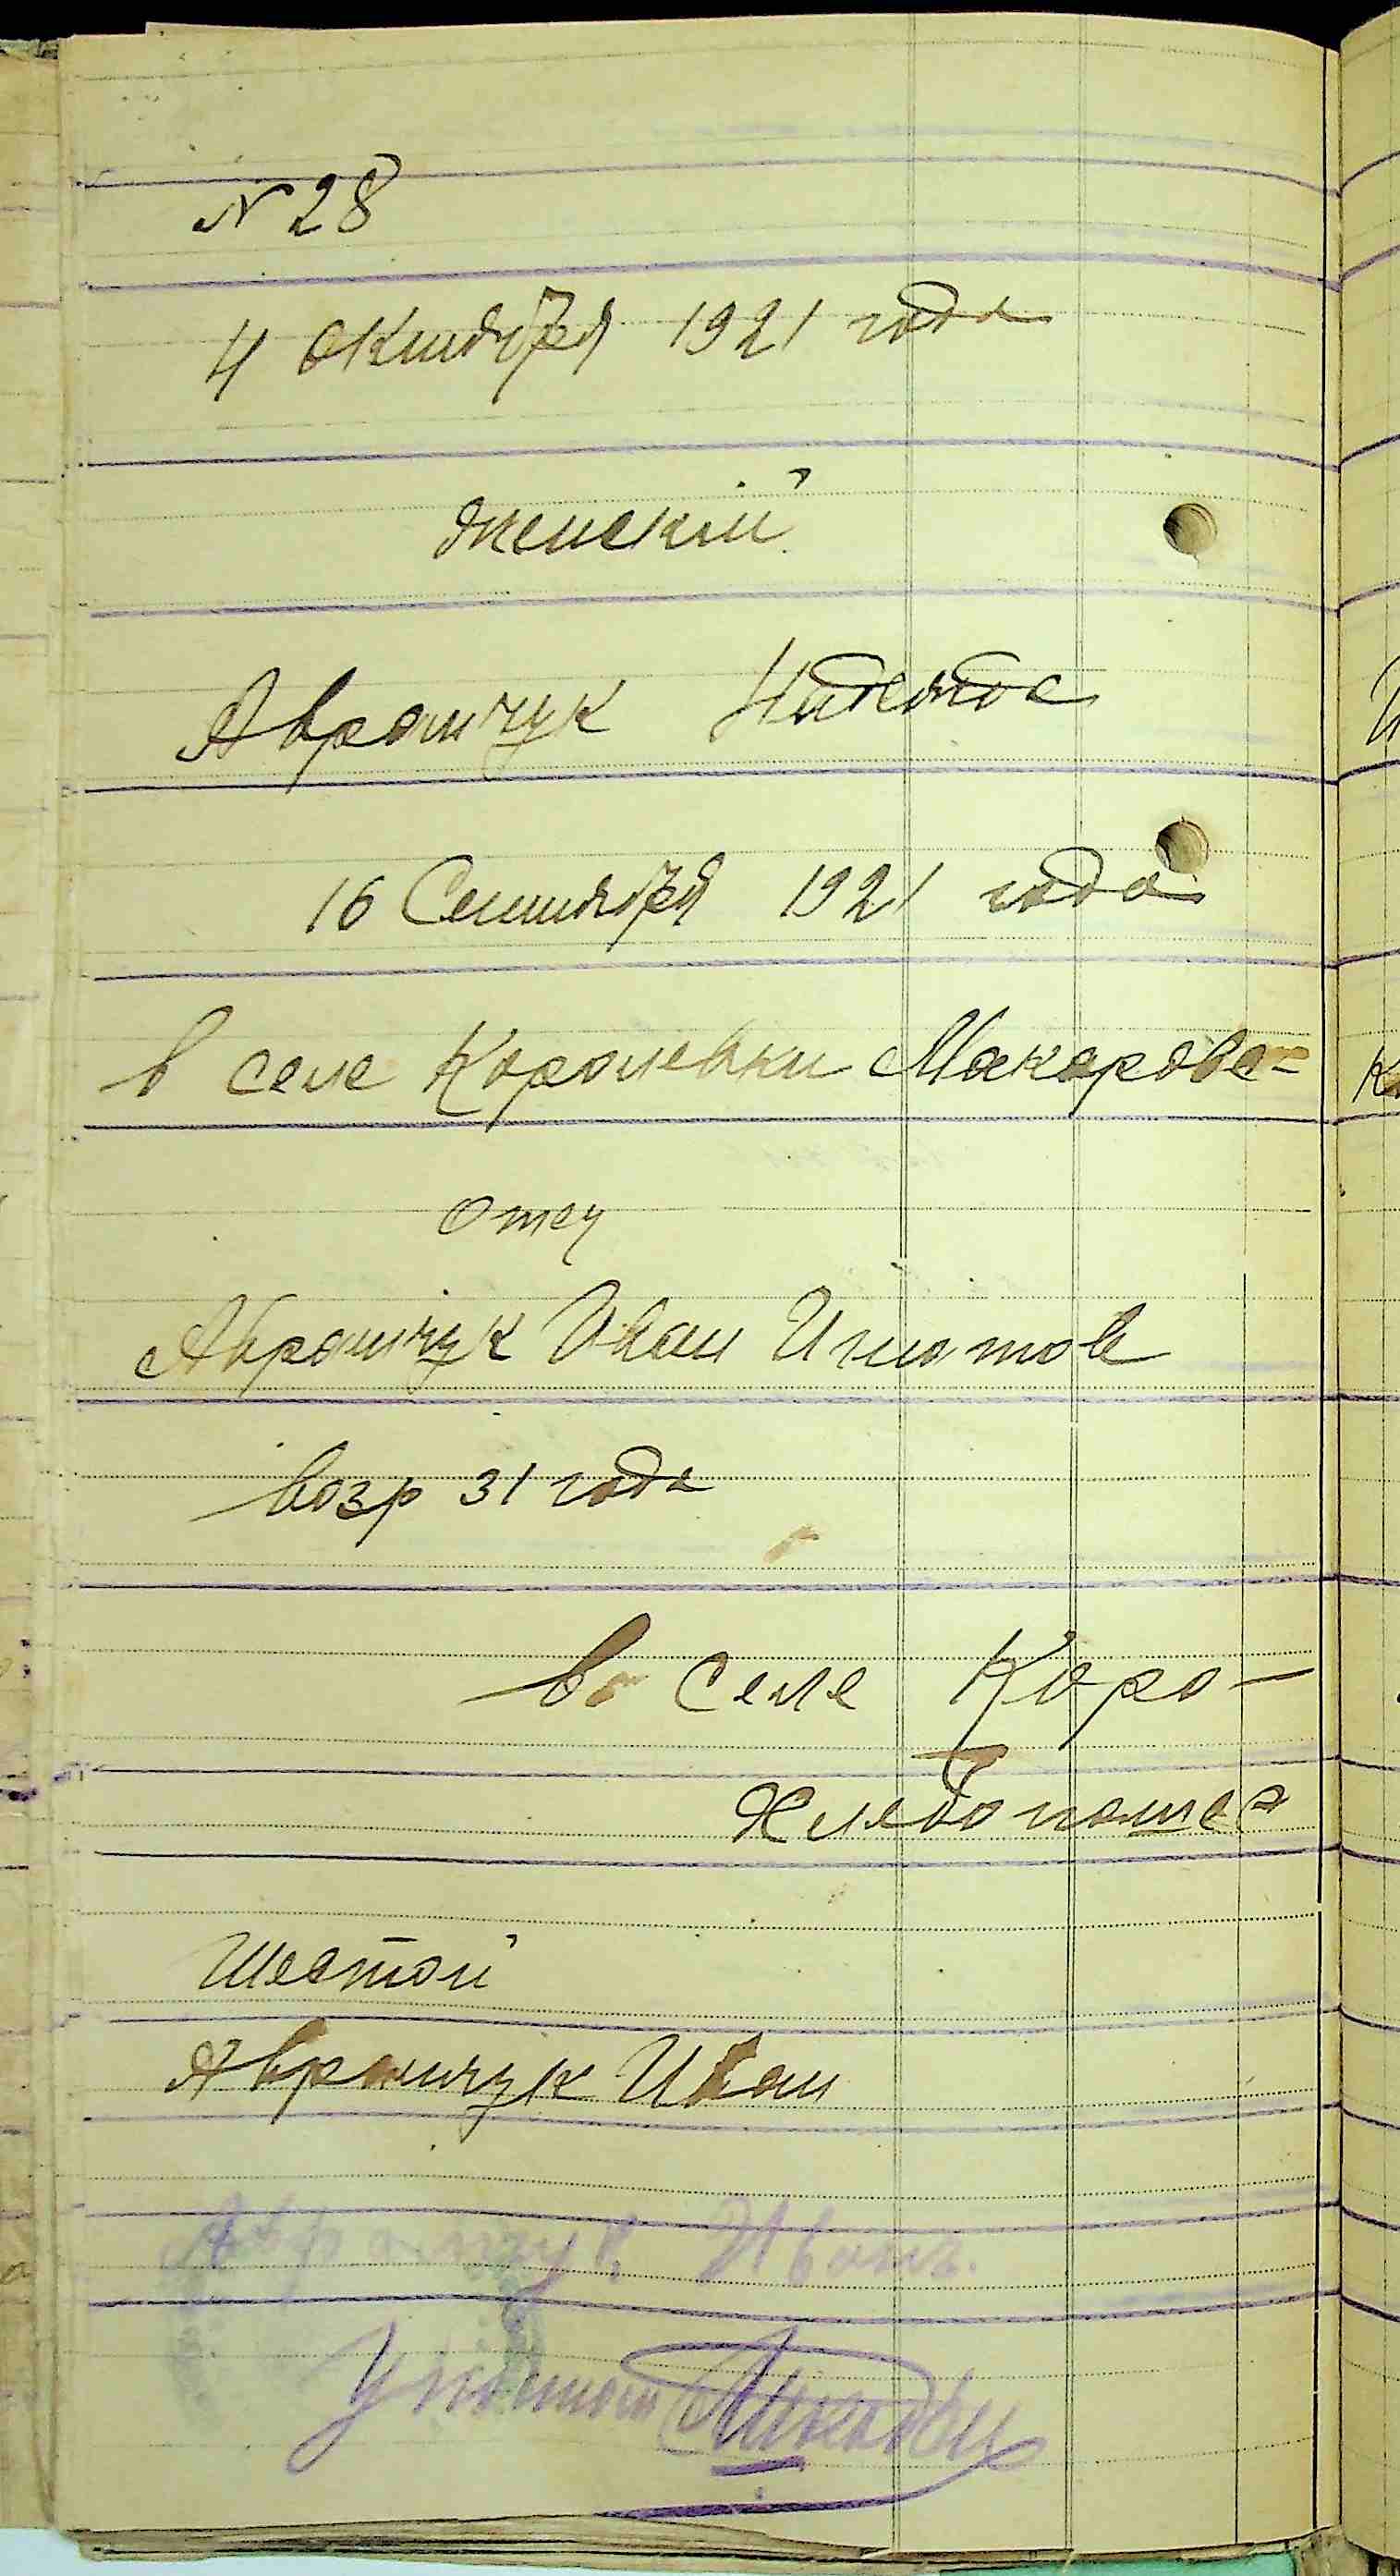 N 28
4 Октября 1921 года
женский
Аврамчук Надежда
16 Сентября 1921 года
в селе Королевки Макарове=
Отец
Аврамчук Иван Игнатов
возр 31 года
в селе Коро-
Хлебопашец
Шестой
Аврамчук Иван
Аврамчук Иван.